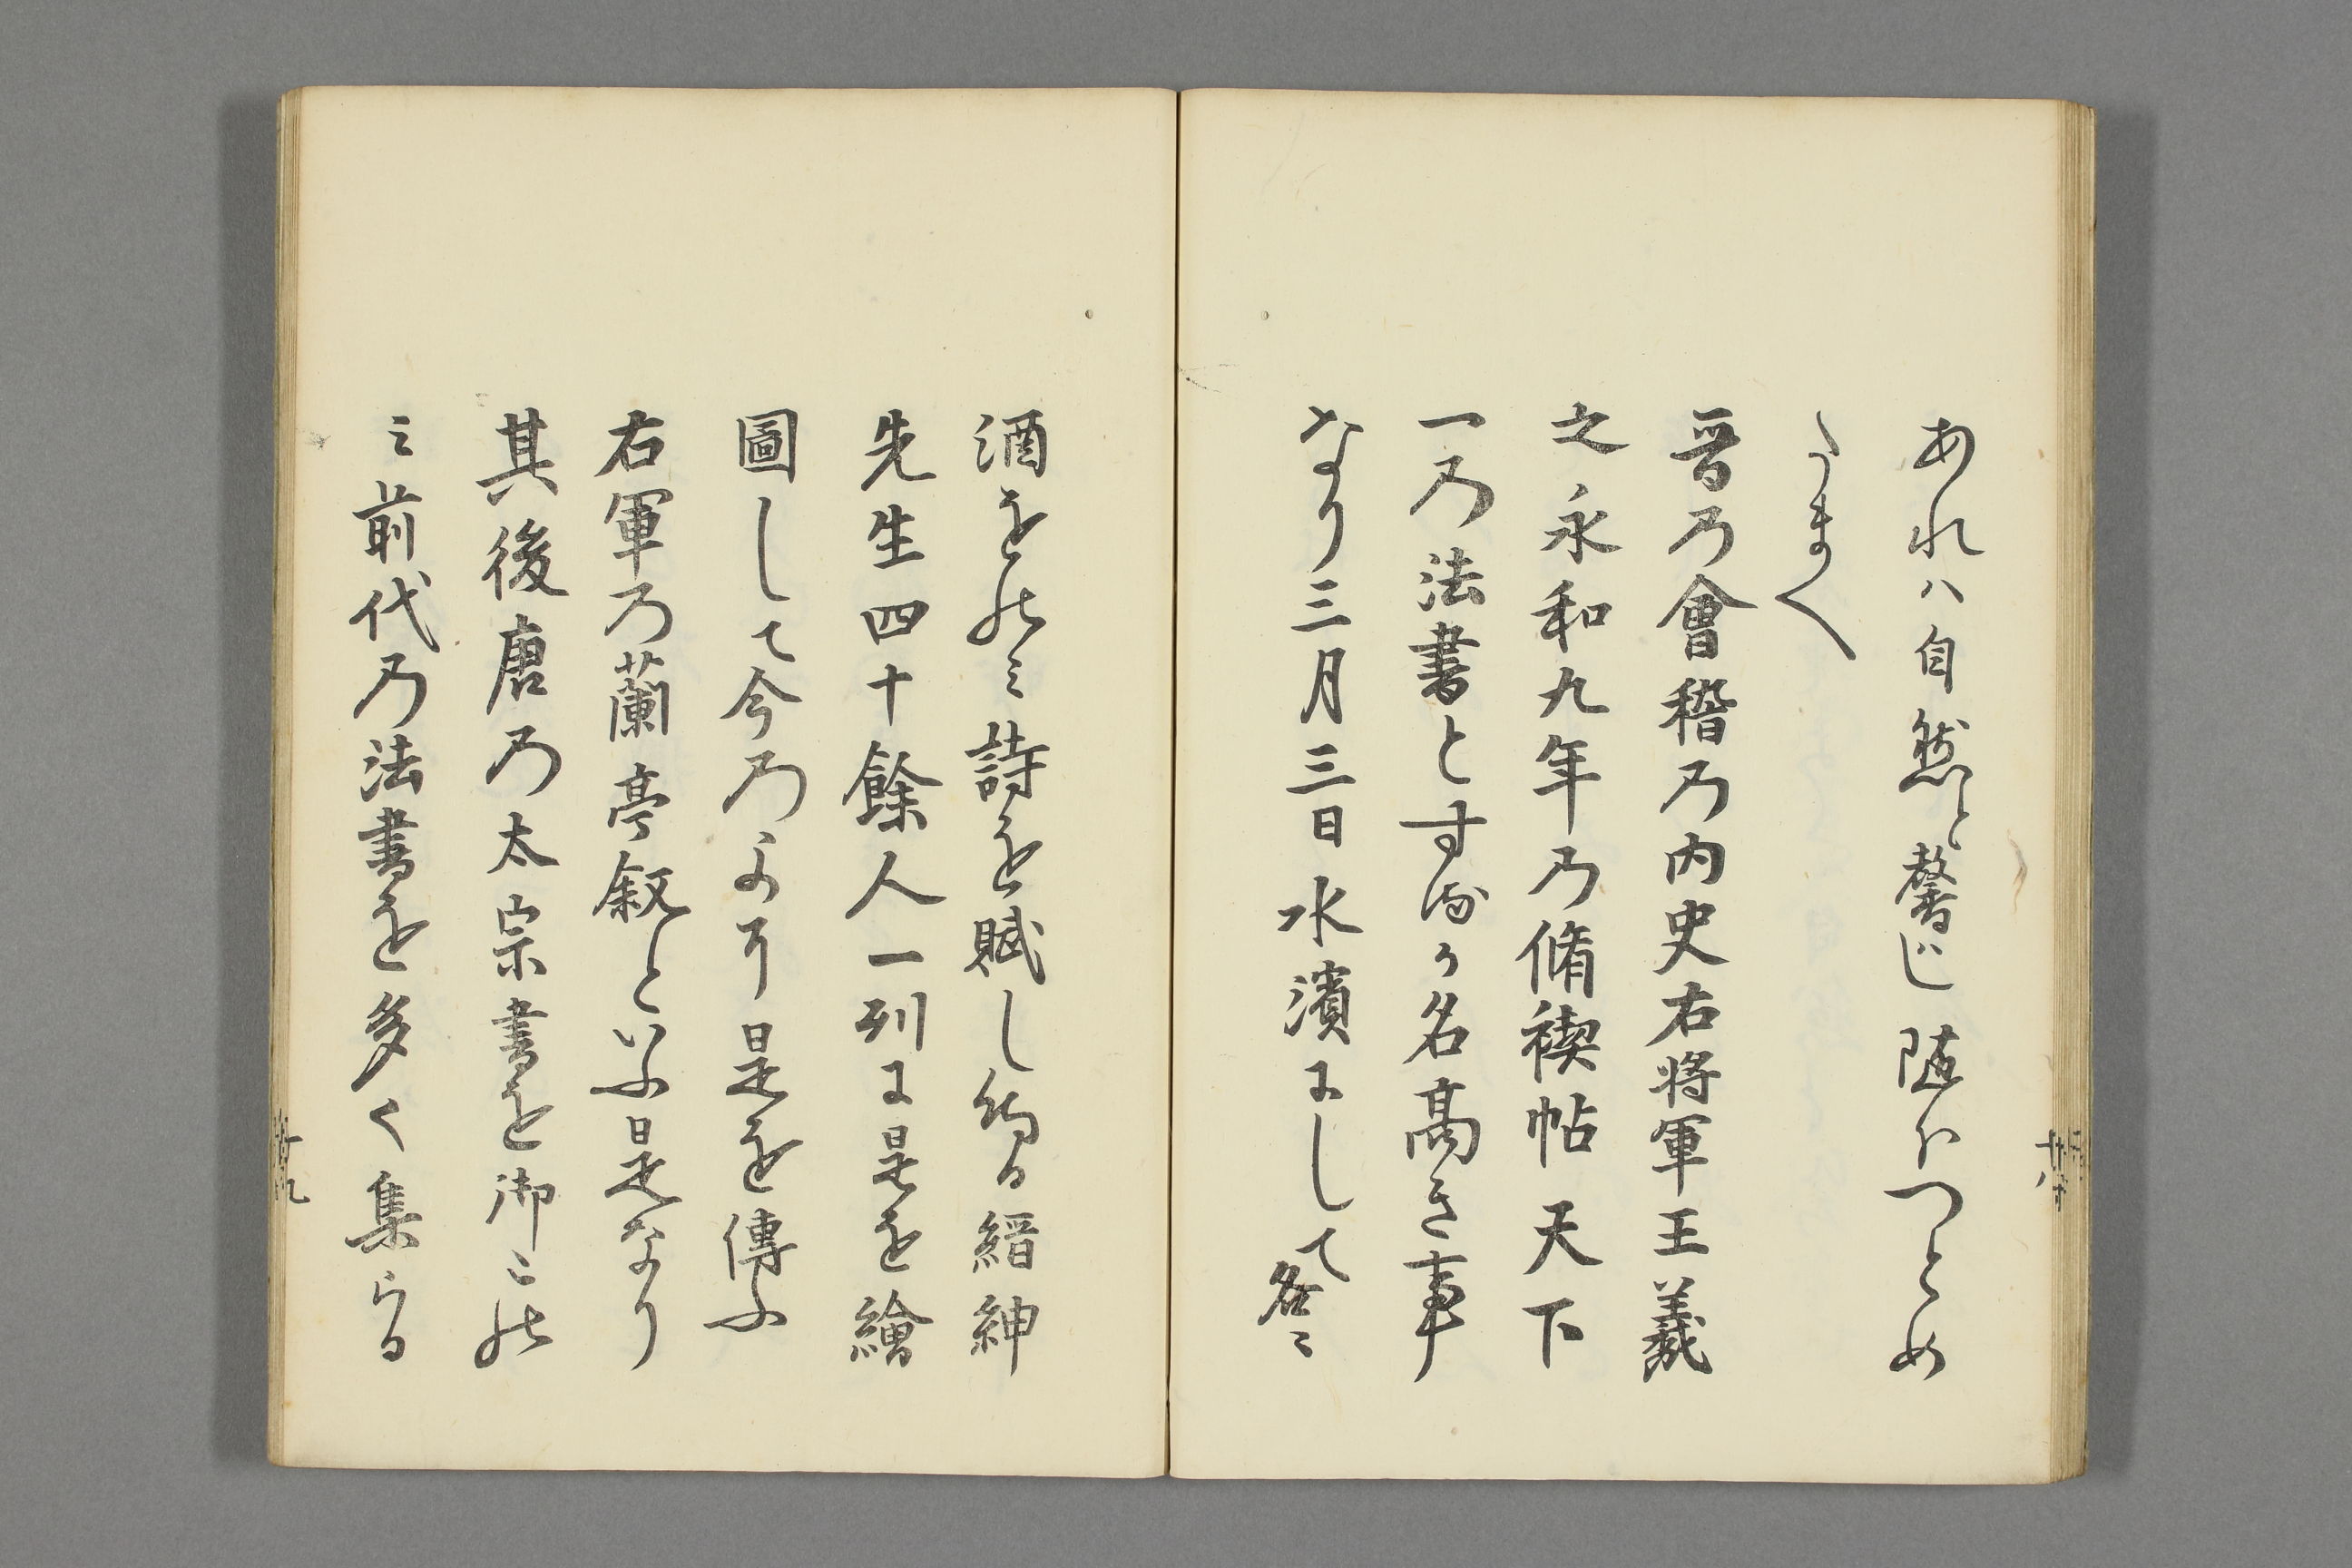 あれハ自然と馨じ随分つとめ
たまへ
晋乃會稽乃内史右将軍王羲
之永和九年乃脩禊帖天下
一乃法書とするか名高き事
なり三月三日水濱にして各〻
酒をのミ詩を賦し給る縉紳
先生四十餘人一列に是を繪
圖して今乃よまて是を傳ふ
右軍乃蘭亭叙といふ是なり
其後唐乃太宗書を御この
ミ前代乃法書を多く集らる
廿八